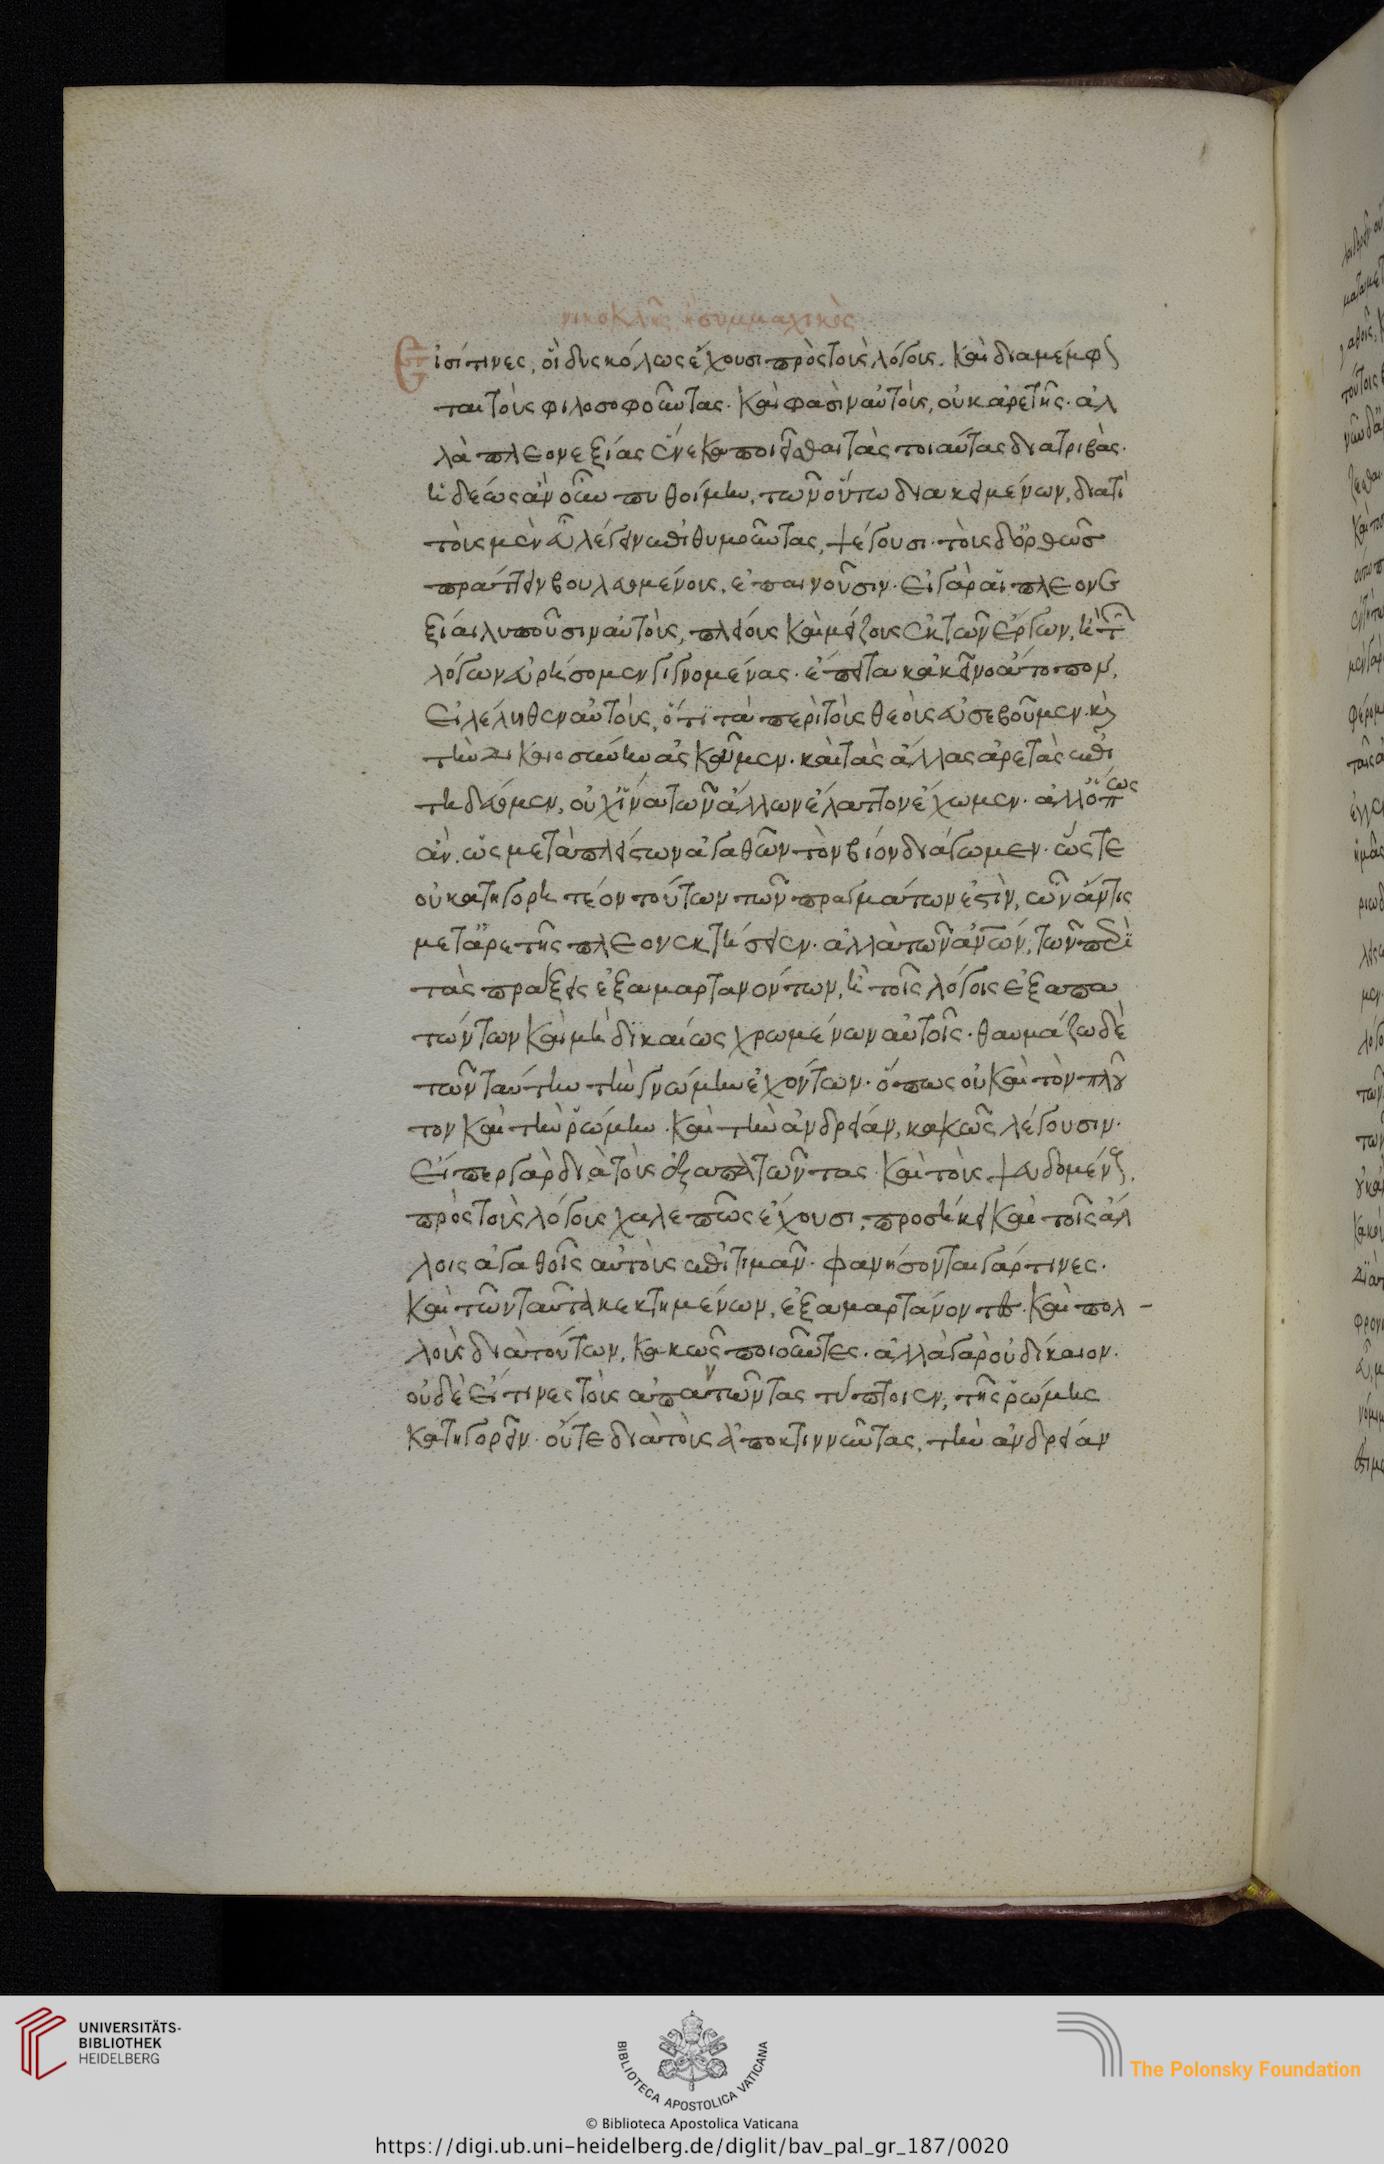 νικοκλῆς ἢ συμμαχικὸς
Εἰσί τινες, οἳ δυσκόλως ἔχουσι πρὸς τοὺς λόγους. καὶ διαμέμφον
ται τοὺς φιλοσοφοῦντας. καὶ φασὶν αὐτοὺς, οὐκ ἀρετῆς. ἀλ
λὰ πλεονεξίας ἕνεκα ποιεῖσθαι τὰς τοιαύτας διατριβάς.
ἡδέως ἂν οὖν πυθοίμην, τῶν οὕτω διακειμένων, διατί
τοὺς μὲν εὖ λέγειν ἐπιθυμοῦντας, ψέγουσι. τοὺς δ' ὀρθῶς
πράττειν βουλευομένους, ἐπαινοῦσιν. εἰ γὰρ αἱ πλεονε
ξίαι λυποῦσιν αὐτοὺς, πλείους καὶ μείζους ἐκ τῶν ἔργων, ἢ τῶν
λόγων εὑρήσομεν γιγνομένας. ἔπειτα κἀκεῖνο ἄτοπον,
εἰ λέληθεν αὐτοὺς, ὅτι τὰ περὶ τοὺς θεοὺς εὐσεβοῦμεν. καὶ
τὴν δικαιοσύνην ἀσκοῦμεν. καὶ τὰς ἄλλας ἀρετὰς ἐπι
τηδεύομεν, οὐχ ἵνα τῶν ἄλλων ἔλαττον ἔχωμεν. ἀλλ' ὅπως
ἂν, ὡς μετὰ πλείστων ἀγαθῶν τὸν βίον διάγωμεν. ὥστε
οὐ κατηγορητέον τούτων τῶν πραγμάτων ἐστὶν, ὧν ἄν τις
μετ' ἀρετῆς πλεονεκτήσειεν. ἀλλὰ τῶν ἀν̅ω̅ν, τῶν περὶ
τὰς πράξεις ἐξαμαρτανόντων, ἢ τοῖς λόγοις ἐξαπα
τώντων καὶ μὴ δικαίως χρωμένων αὐτοῖς. θαυμάζω δὲ
τῶν ταύτην τὴν γνώμην ἐχόντων. ὅπως οὐ καὶ τὸν πλοῦ
τον καὶ τὴν ῥώμην. καὶ τὴν ἀνδρείαν, κακῶς λέγουσιν.
εἴπερ γὰρ διὰ τοὺς ἐξαπατῶντας καὶ τοὺς ψευδομένους,
πρὸς τοὺς λόγους χαλεπῶς ἔχουσι, προσήκει καὶ τοῖς ἄλ
λοις ἀγαθοῖς αὐτοὺς ἐπιτιμᾶν. φανήσονται γάρ τινες.
καὶ τῶν ταῦτα κεκτημένων, ἐξαμαρτάνοντες. καὶ πολ
λοὺς διὰ τούτων, κακῶς ποιοῦντες. ἀλλὰ γὰρ οὐ δίκαιον.
οὐδὲ εἴ τινες τοὺς ἀπαντῶντας τύπτοιεν, τῆς ῥώμης
κατηγορεῖν. οὔτε διὰ τοὺς ἀποκτιννῦντας, τὴν ἀνδρείαν
UNIVERSITÄTS-
BIBLIOTHEK
HEIDELBERG
BIBLIOTECA APOSTOLICA VATICANA
The Polonsky Foundation
© Biblioteca Apostolica Vaticana
https://digi.ub.uni-heidelberg.de/diglit/bav_pal_gr_187/0020